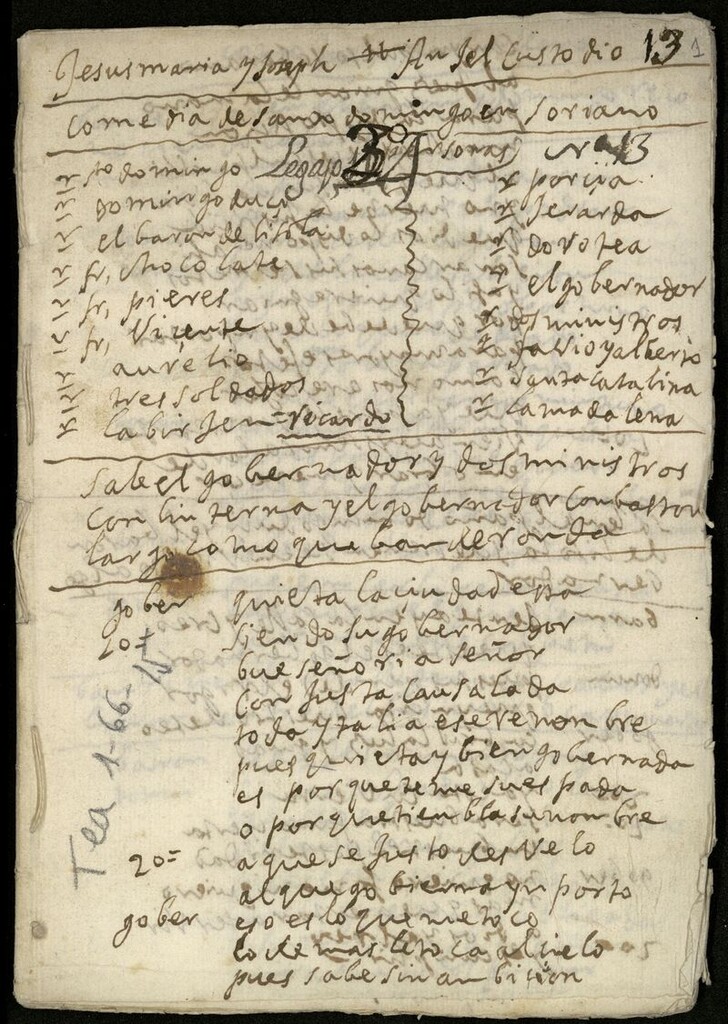 Jesus maria y Joseph Anjel Custodio 13 1
Comedia de santo domingo en soriano
Legajo 3º personas Nº 13
sto domingo
domingo
el baron de
fr, chocolate
fr, pieres
fr, Viçente
aurelio
tres soldados
la birJen ricardo
porçia
Jerarda
dorotea
el gobernador
dos ministros
y alberto
santa catalina
la madalena
sale el gobernador y dos ministros
con linterna y el gobernador con baston
largo como que ban de ronda
gober quieta la ciudad esta
1o= siendo su gobernador
bueseñoria señor
con Justa causa la da
toda ytalia ese renonbre
pues quieta y bien gobernada
es porque teme su espada
o porque tienbla su nonbre
2o= a que se Justo desvelo
al que gobierna ynporto
gober eso es lo que me toco
lo demas le toca al cielo
pues sabe sin anbicion
Tea 1-66-15